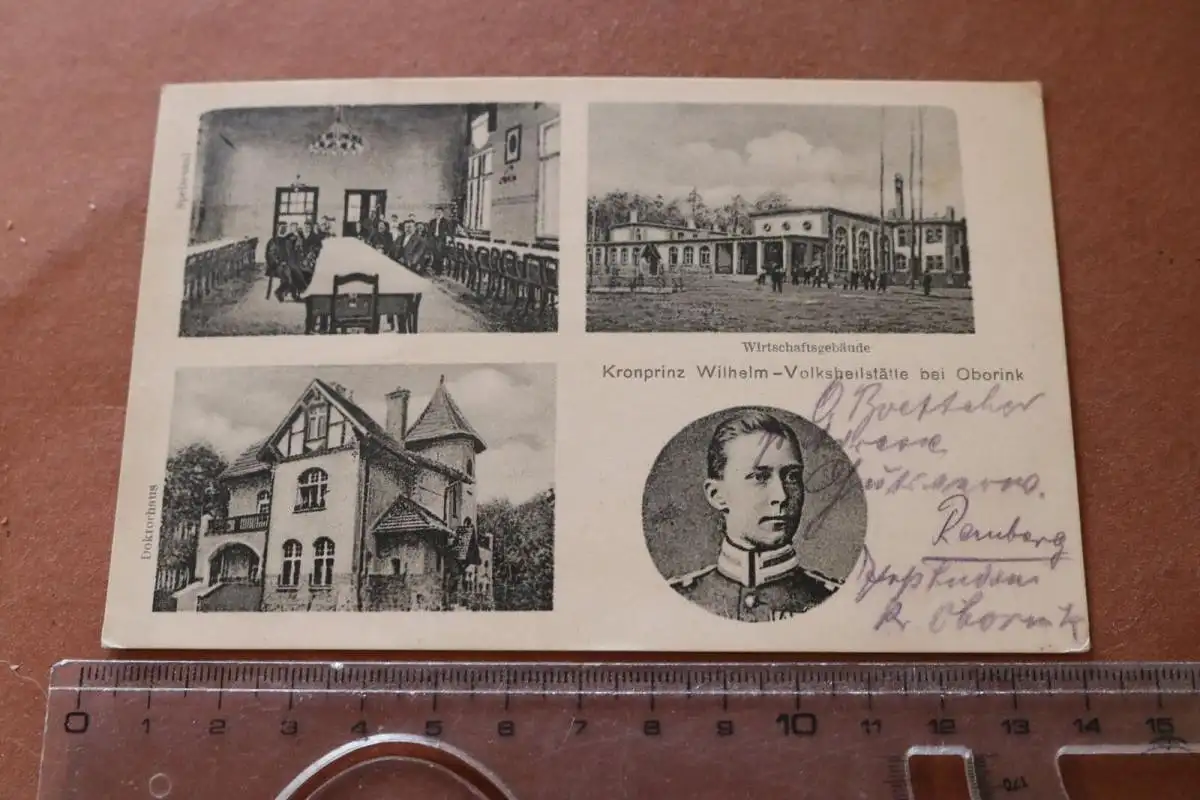 Speisesaal
Wirtschaftsgebäude
Kronprinz Wilhelm-Volksheilstätte bei Obornik
Doktorhaus
G Boettcher
Ramberg
Kr. Obornik
0 1 2 3 4 5 6 7 8 9 10 11 12 13 14 15
170